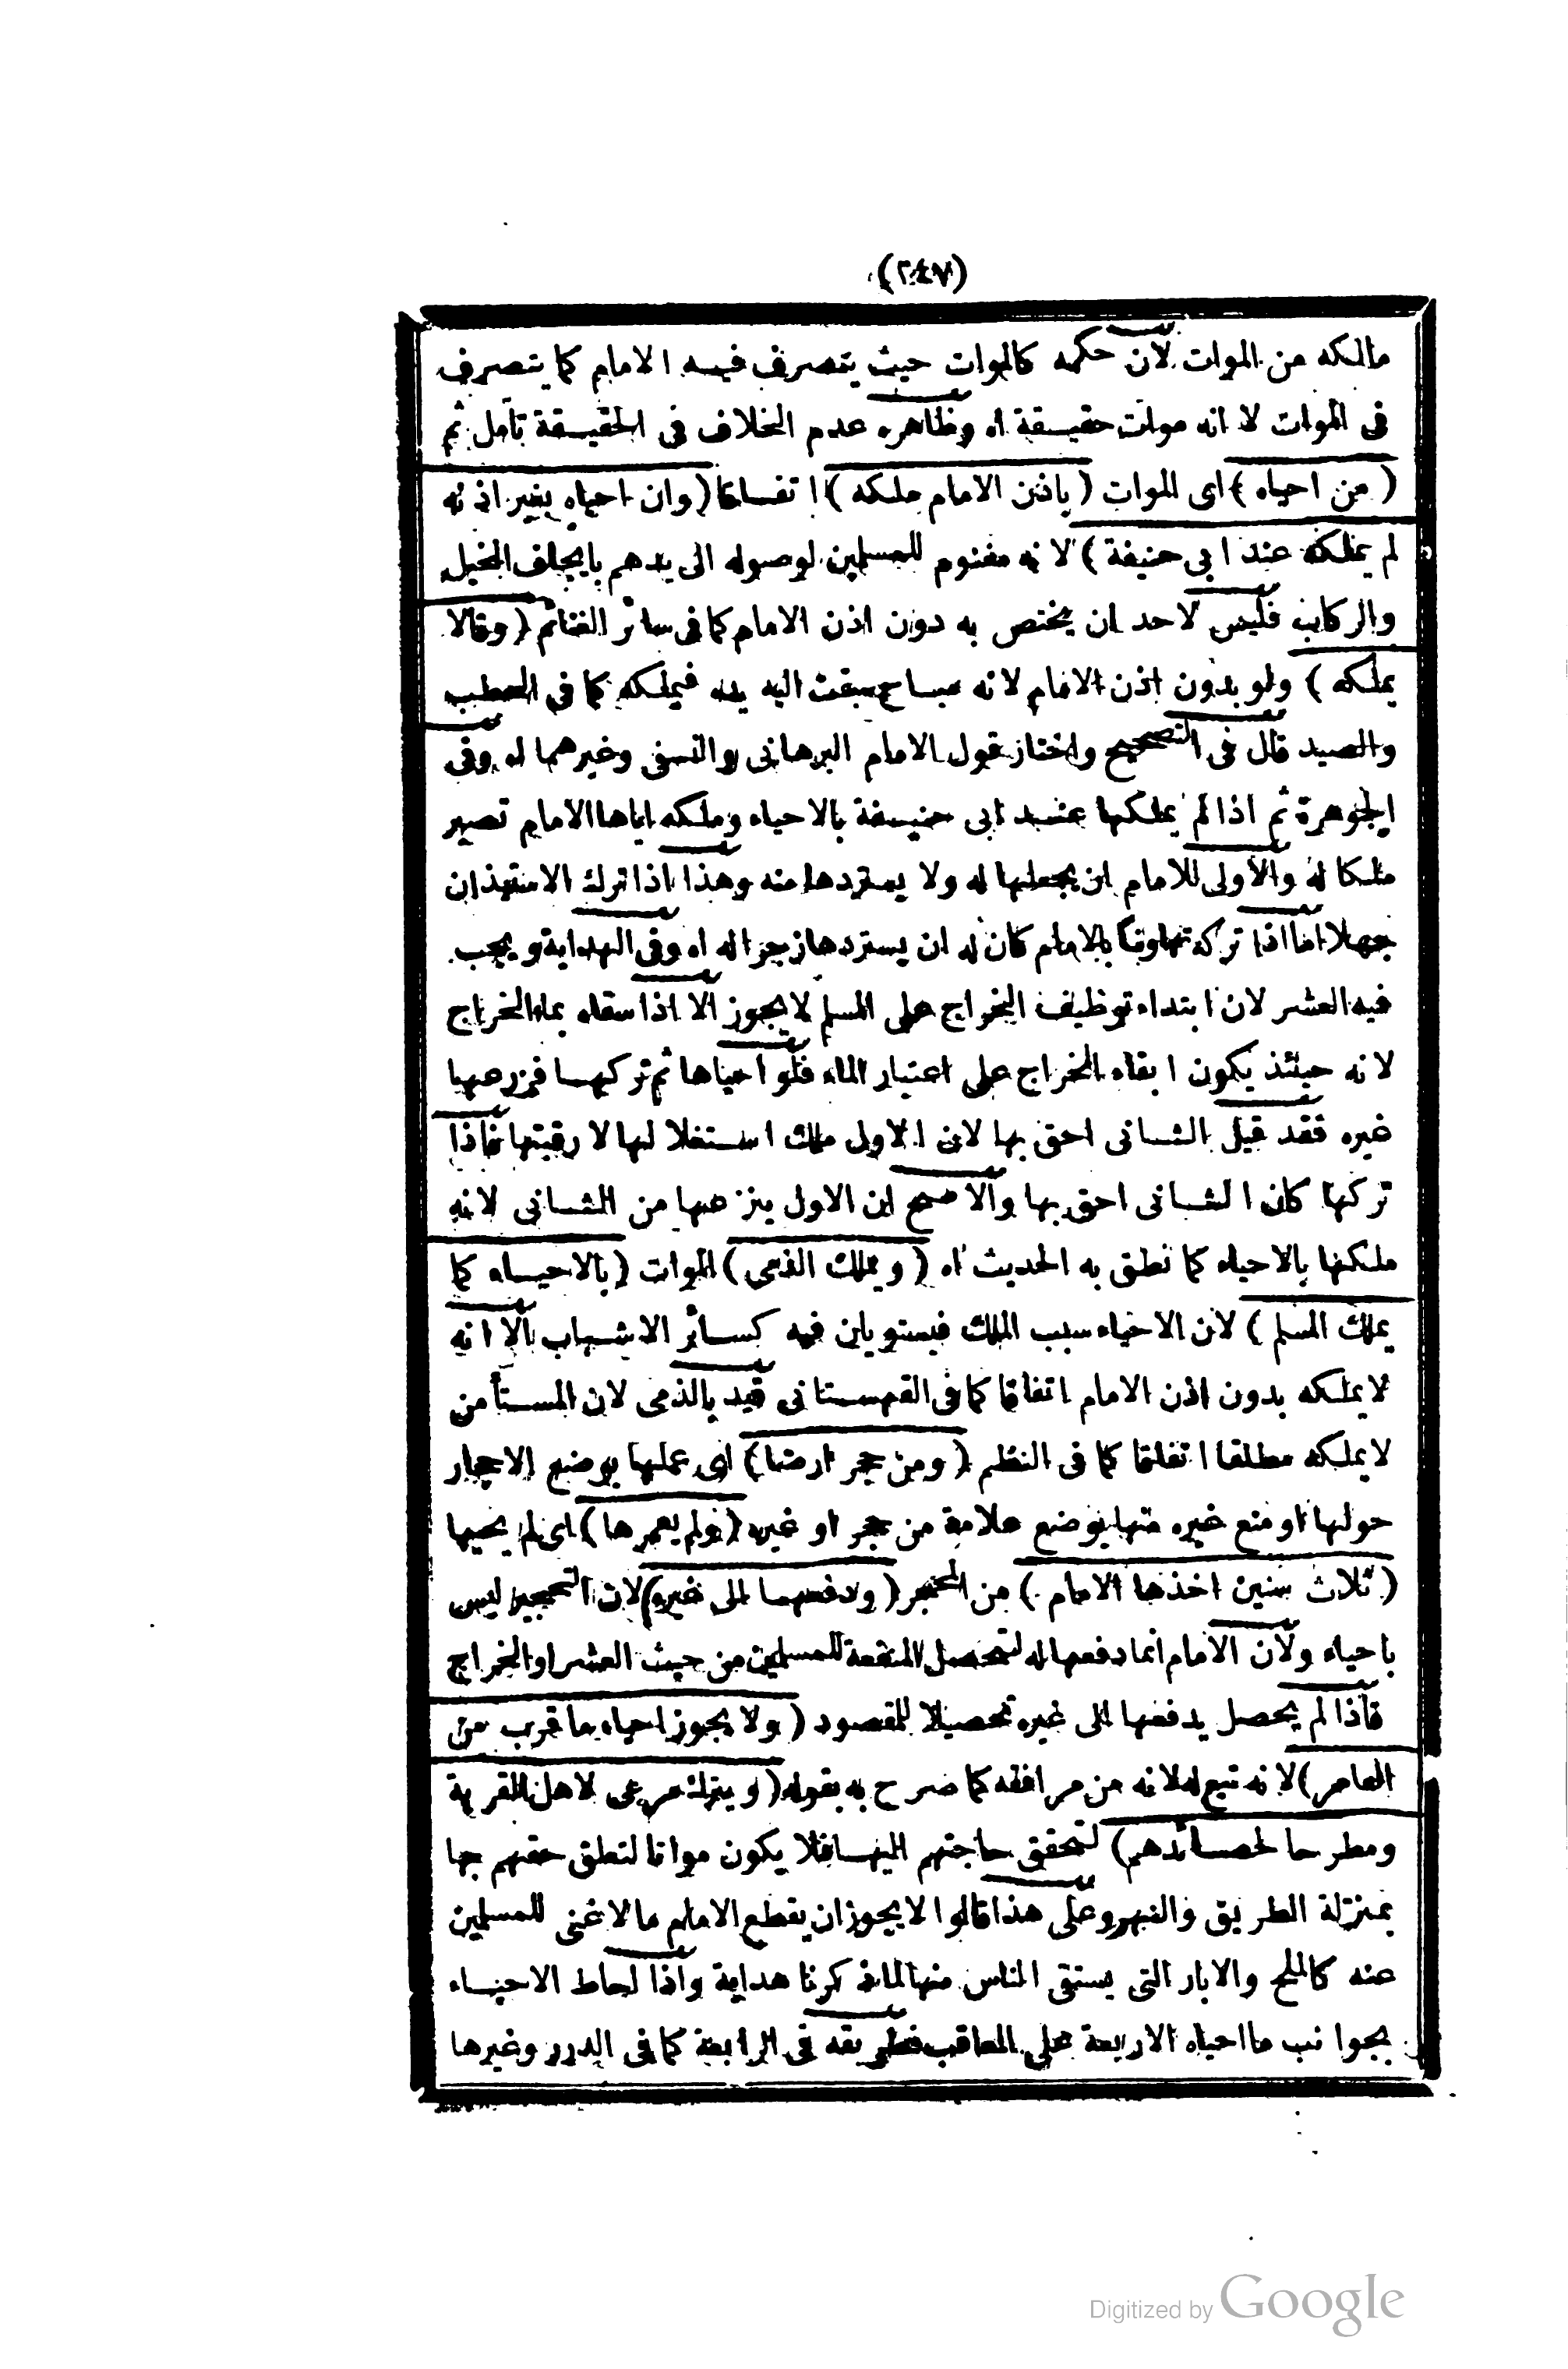 (٢٤٧)
مالكه من الموات لان حكمه كالموات حيث يتصرف فيه الامام كما يتصرف
فى الموات لا انه موات حقيقة اه وظاهره عدم الخلاف فى الحقيقة تأمل ثم
(من احياه) اى الموات (باذن الامام ملكه) اتفاقا (وان احياه بغير اذنه
لم يملكه عند ابى حنيفة) لانه مغنوم للمسلمين لوصوله الى يدهم بايجاف الخيل
والركاب فليس لاحد ان يختص به دون اذن الامام كما فى سائر الغنائم (وقالا
يملكه) ولو بدون اذن الامام لانه مباح سبقت اليه يده فيملكه كما فى الحطب
والصيد قال فى التصحيح واختار قول الامام البرهانى والنسفى وغيرهما اه وفى
الجوهرة ثم اذا لم يملكها عند ابى حنيفة بالاحياء وملكه اياها الامام تصير
ملكا له والاولى للامام ان يجعلها له ولا يستردها منه وهذا اذا ترك الاستيذان
جهلا اما اذا تركه تهاونا بالامام كان له ان يستردها زجرا له اه وفى الهداية ويجب
فيه العشر لان ابتداء توظيف الخراج على المسلم لا يجوز الا اذا سقاه بماء الخراج
لانه حينئذ يكون ابقاء الخراج على اعتبار الماء فلو احياها ثم تركها فزرعها
غيره فقد قيل الثانى احق بها لان الاول ملك استغلالها لا رقبتها فاذا
تركها كان الثانى احق بها والاصح ان الاول ينزعها من الثانى لانه
ملكها بالاحياء كما نطق به الحديث اه (ويملك الذمى) الموات (بالاحياء كما
يملك المسلم) لان الاحياء سبب الملك فيستويان فيه كسائر الاسباب الا انه
لا يملكه بدون اذن الامام اتفاقا كما فى القهستانى قيد بالذمى لان المستأمن
لا يملكه مطلقا اتفاقا كما فى النظم (ومن حجر ارضا) اى علمها بوضع الاحجار
حولها او منع غيره منها بوضع علامة من حجر او غيره (ولم يعمرها) اى لم يحيها
(ثلاث سنين اخذها الامام) من المحجر (ودفعها الى غيره) لان التحجير ليس
باحياء ولان الامام انما دفعها له لتحصل المنفعة للمسلمين من حيث العشر او الخراج
فاذا لم يحصل يدفعها الى غيره تحصيلا للمقصود (ولا يجوز احياء ما قرب من
العامر) لانه تبع له لانه من مرافقه كما صرح به بقوله (ويترك مرعى لاهل القرية
ومطرحا لحصائدهم) لتحقق حاجتهم اليها فلا يكون مواتا لتعلق حقهم بها
بمنزلة الطريق والنهر وعلى هذا قالوا لا يجوز ان يقطع الامام ما لا غنى للمسلمين
عنه كالملح والابار التى يستقى الناس منها لما ذكرنا هداية واذا احاط الاحياء
بجوانب ما احياه الاربعة على التعاقب فطريقه فى الرابعة كما فى الدرر وغيرها
Digitized by Google